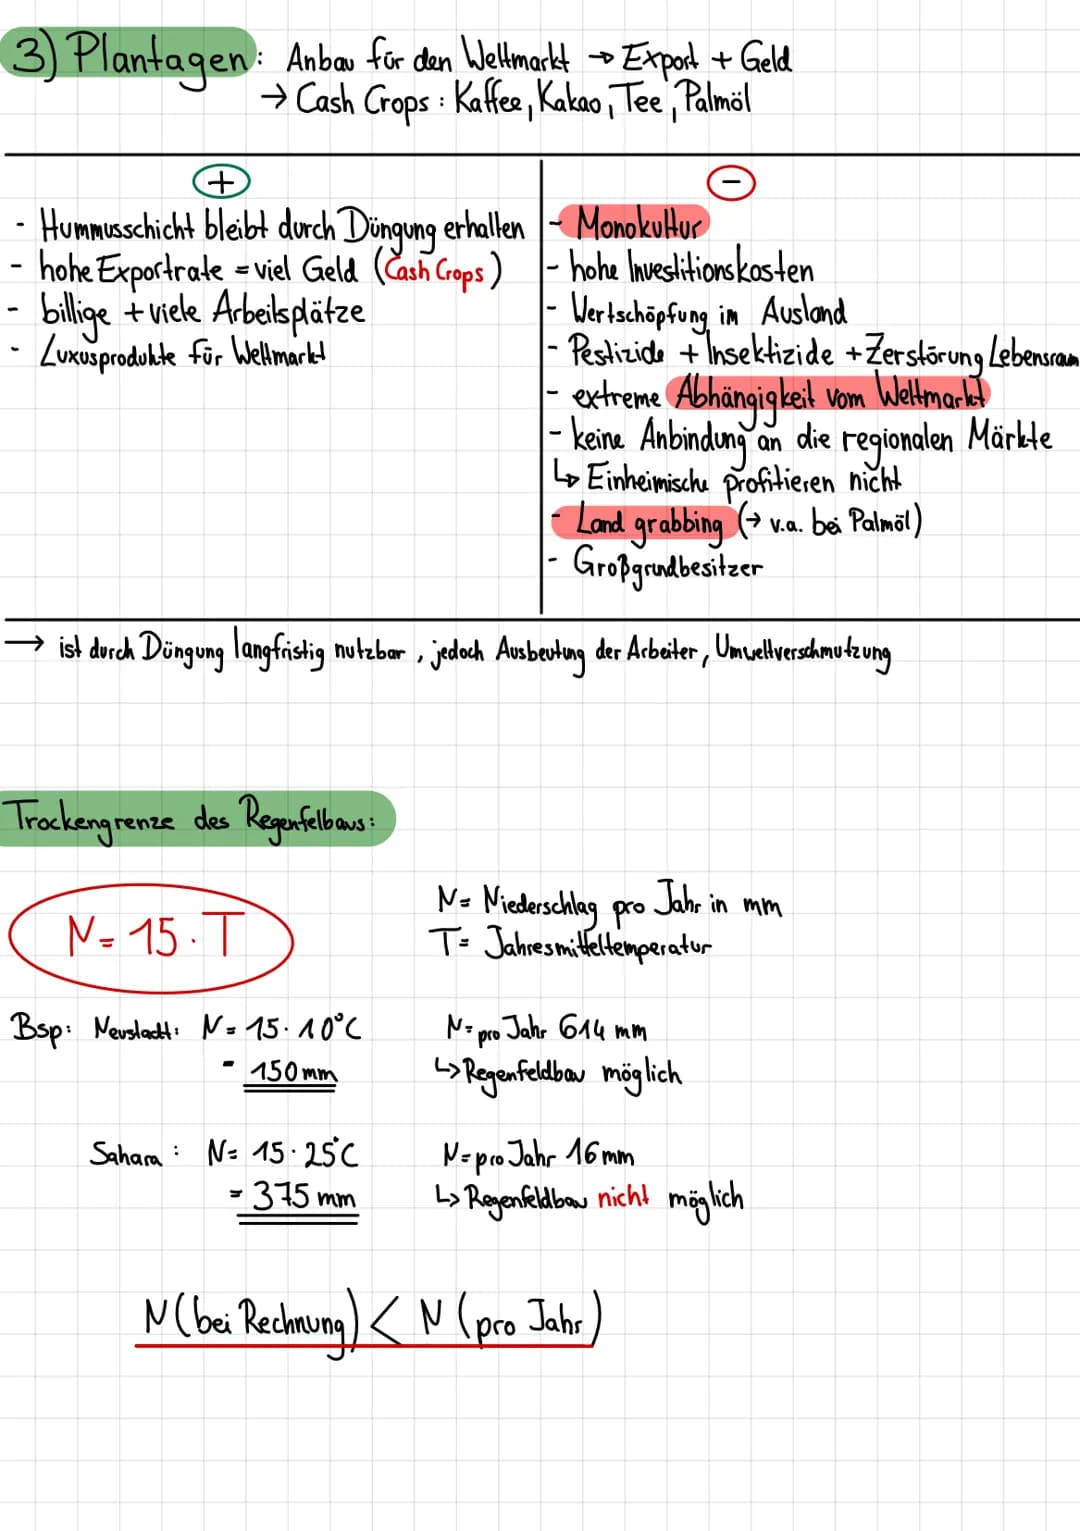 3) Plantagen: Anbau für den Weltmarkt → Export + Geld
→ Cash Crops: Kaffee, Kakao, Tee, Palmöl
+
- Hummusschicht bleibt durch Düngung erhalten
- hohe Exportrate = viel Geld (Cash Crops)
- billige + viele Arbeitsplätze
- Luxusprodukte für Weltmarkt
-
- Monokultur
- hohe Investitionskosten
- Wertschöpfung im Ausland
- Pestizide + Insektizide + Zerstörung Lebensraum
- extreme Abhängigkeit vom Weltmarkt
- keine Anbindung an die regionalen Märkte
↳ Einheimische profitieren nicht
- Land grabbing (→ v.a. bei Palmöl)
- Großgrundbesitzer
→ ist durch Düngung langfristig nutzbar, jedoch Ausbeutung der Arbeiter, Umweltverschmutzung
Trockengrenze des Regenfelbaus:
N = 15 · T
N = Niederschlag pro Jahr in mm
T = Jahresmitteltemperatur
Bsp: Neustadt: N = 15 · 10°C
= 150 mm
N = pro Jahr 614 mm
↳ Regenfeldbau möglich
Sahara: N = 15 · 25°C
= 375 mm
N = pro Jahr 16 mm
↳ Regenfeldbau nicht möglich
N (bei Rechnung) < N (pro Jahr)